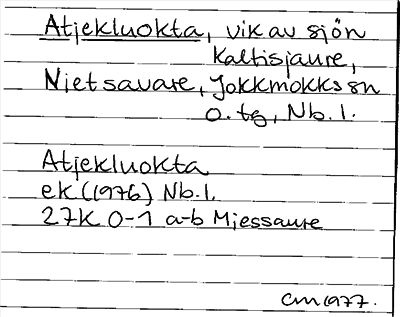 Atjekluokta, vik av sjön
Kaltisjaure,
Nietsavare, Jokkmokks sn
o. tg, Nb. l.
Atjekluokta
ek (1976) Nb. l.
27K 0-1 a-b Miessaure
CM 1977.